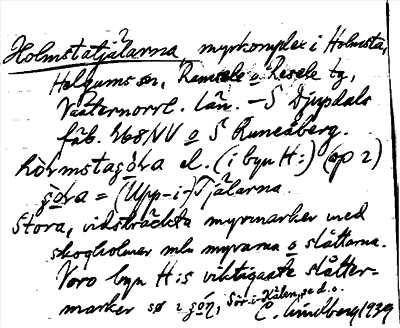 Holmstatjälarna, myrkomplex i Holmsta,
Helgums sn, Ramsele o Resele tg,
Västernorrl. län. – S Djupdals
fäb. 468 NV o S Runeåberg.
hòrmstagö̀ra el. (i byn H:) (ap 2)
gö̀ra = (Upp-i-)Tjälarna.
Stora, vidsträckta myrmarker med
skogholmar mln myrarna o slåttarna.
Voro byn H:s viktigaste slåtter-
marker sø i gö́ṇ, Sör-i-Kälen, se d.o.
C. Lindberg 1939